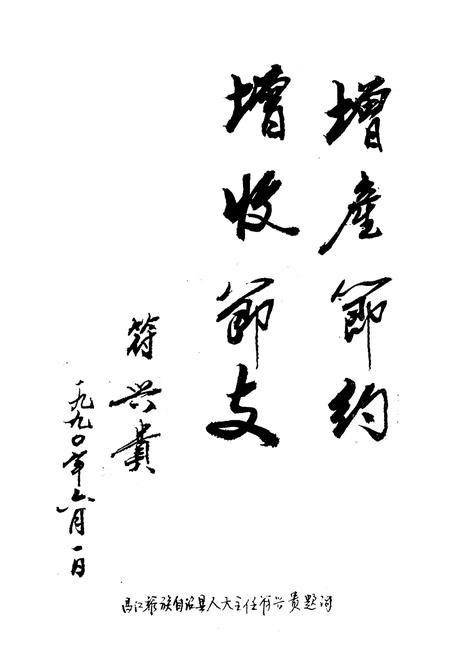 增產節约
增收節支
符兴貴
一九九〇年六月一日
昌江黎族自治县人大主任符兴贵题词